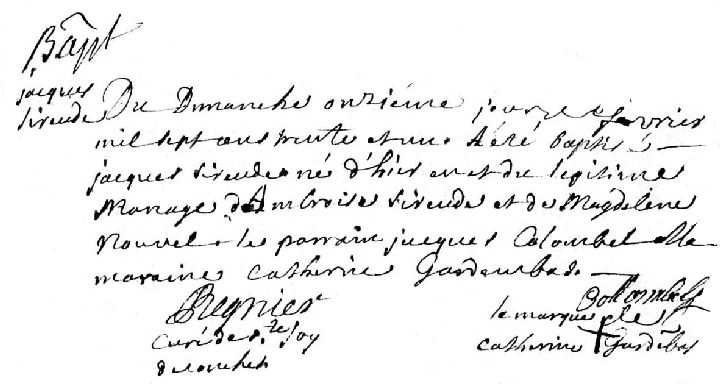 Bapt
jacques
Sireude
Du Dimanche onziéme jour de fevrier
mil sept cens trente et un a été Baptisé
jacques Sireude né d'hier en et du legitime
Mariage d'Ambroise Sireude et de Magdelene
Nouvel. le parrain jacques Colombel et la
maraine Catherine Gardembas.
Regnier
Curé de Ste foy
de conches
Collombel
la marque de
catherine Gardébas